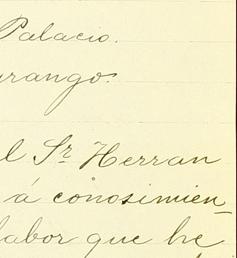 Palacio.
urango.
l Sr. Herran
á conosimien_
labor que he